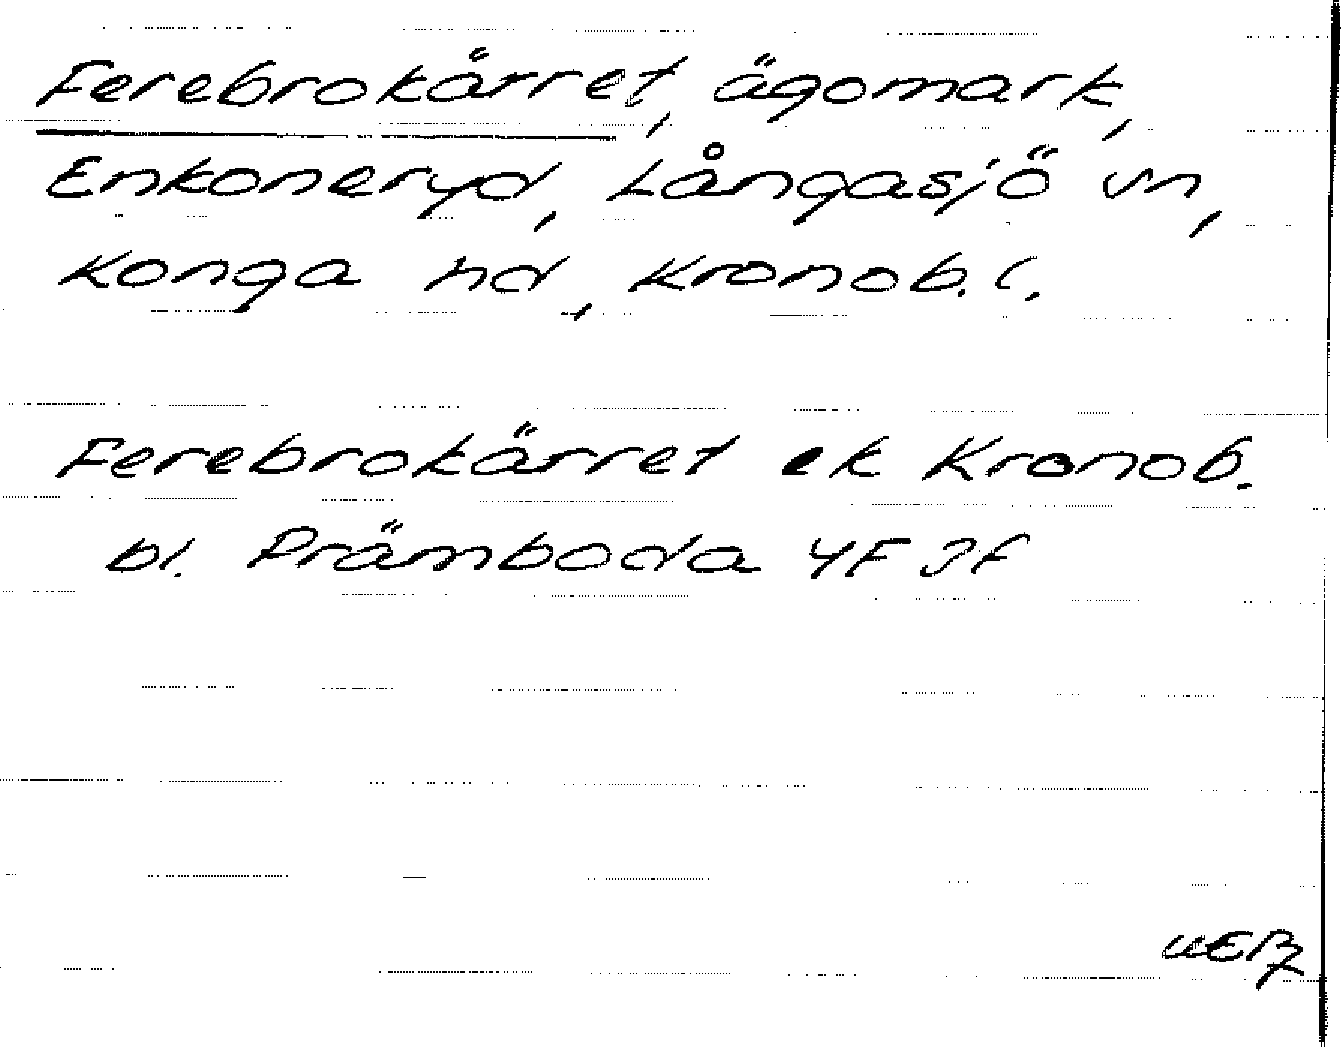 Ferebrokärret, ägomark,
Enkoneryd, Långasjö sn,
Konga hd, Kronob. l.
Ferebrokärret ek Kronob.
bl. Prämboda 4F 3f